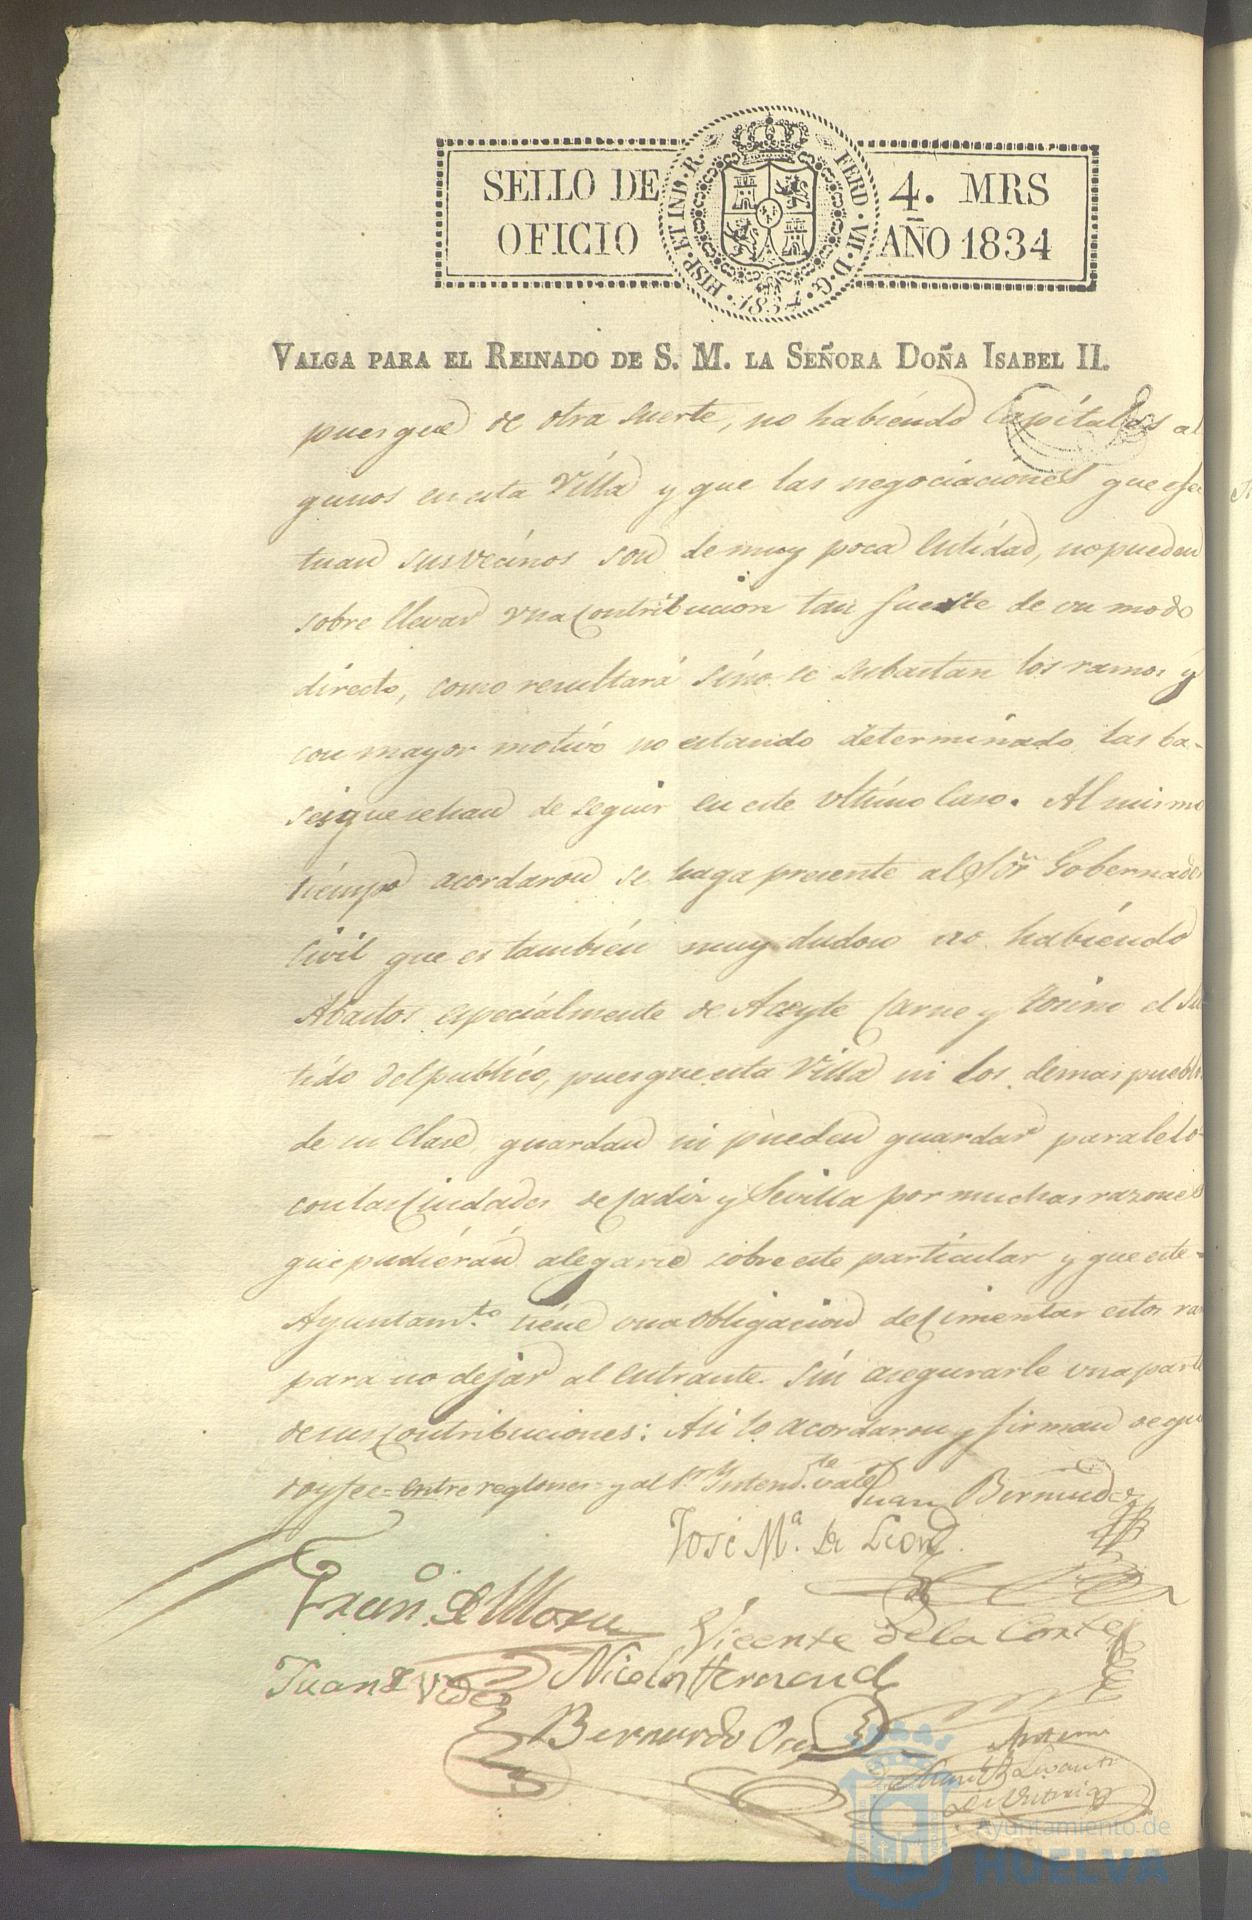 SELLO DE
OFICIO
4. MRS
AÑO 1834
HISP. ET IND. R. FERD. VII. D. G. 1834.
VALGA PARA EL REINADO DE S. M. LA SEÑORA DOÑA ISABEL II.
puesque de otra suerte, no habiendo Capitales al
gunos en esta Villa y que las negociaciones que efec
tuan sus vecinos son de muy poca entidad, no pueden
sobre llevar una Contribucion tan fuerte de un modo
directo, como resultará sino se subastan los ramos y
con mayor motivo no estando determinado las ba-
ses que se han de seguir en este ultimo Caso. Al mismo
tiempo acordaron se haga presente al Sor. Gobernador
Civil que es tambien muy dudoso no habiendo
Abastos especialmente de Aceyte Carne y tosino el su
tido del publico, pues que esta Villa ni los demas pueblos
de su Clase guardan ni pueden guardar paralelo
con las Ciudades de Cadiz y Sevilla por muchas razones
que pudieran alegarse sobre este particular y que este
Ayuntam.to tiene una obligacion de Cimentar estos ra
para no dejar al entrante sin asegurarle una parte
de sus Contribuciones: Asi lo acordaron y firman de que
doy fee = entre reglones = y al Sr Intend.te vale
Juan Bermudez
José M.a de Leon
Fran.co de Mora
Vicente de la Corte
Juan de
Nicolas Hernand
Bernardo
Ante mi
Ayuntamiento de
HUELVA